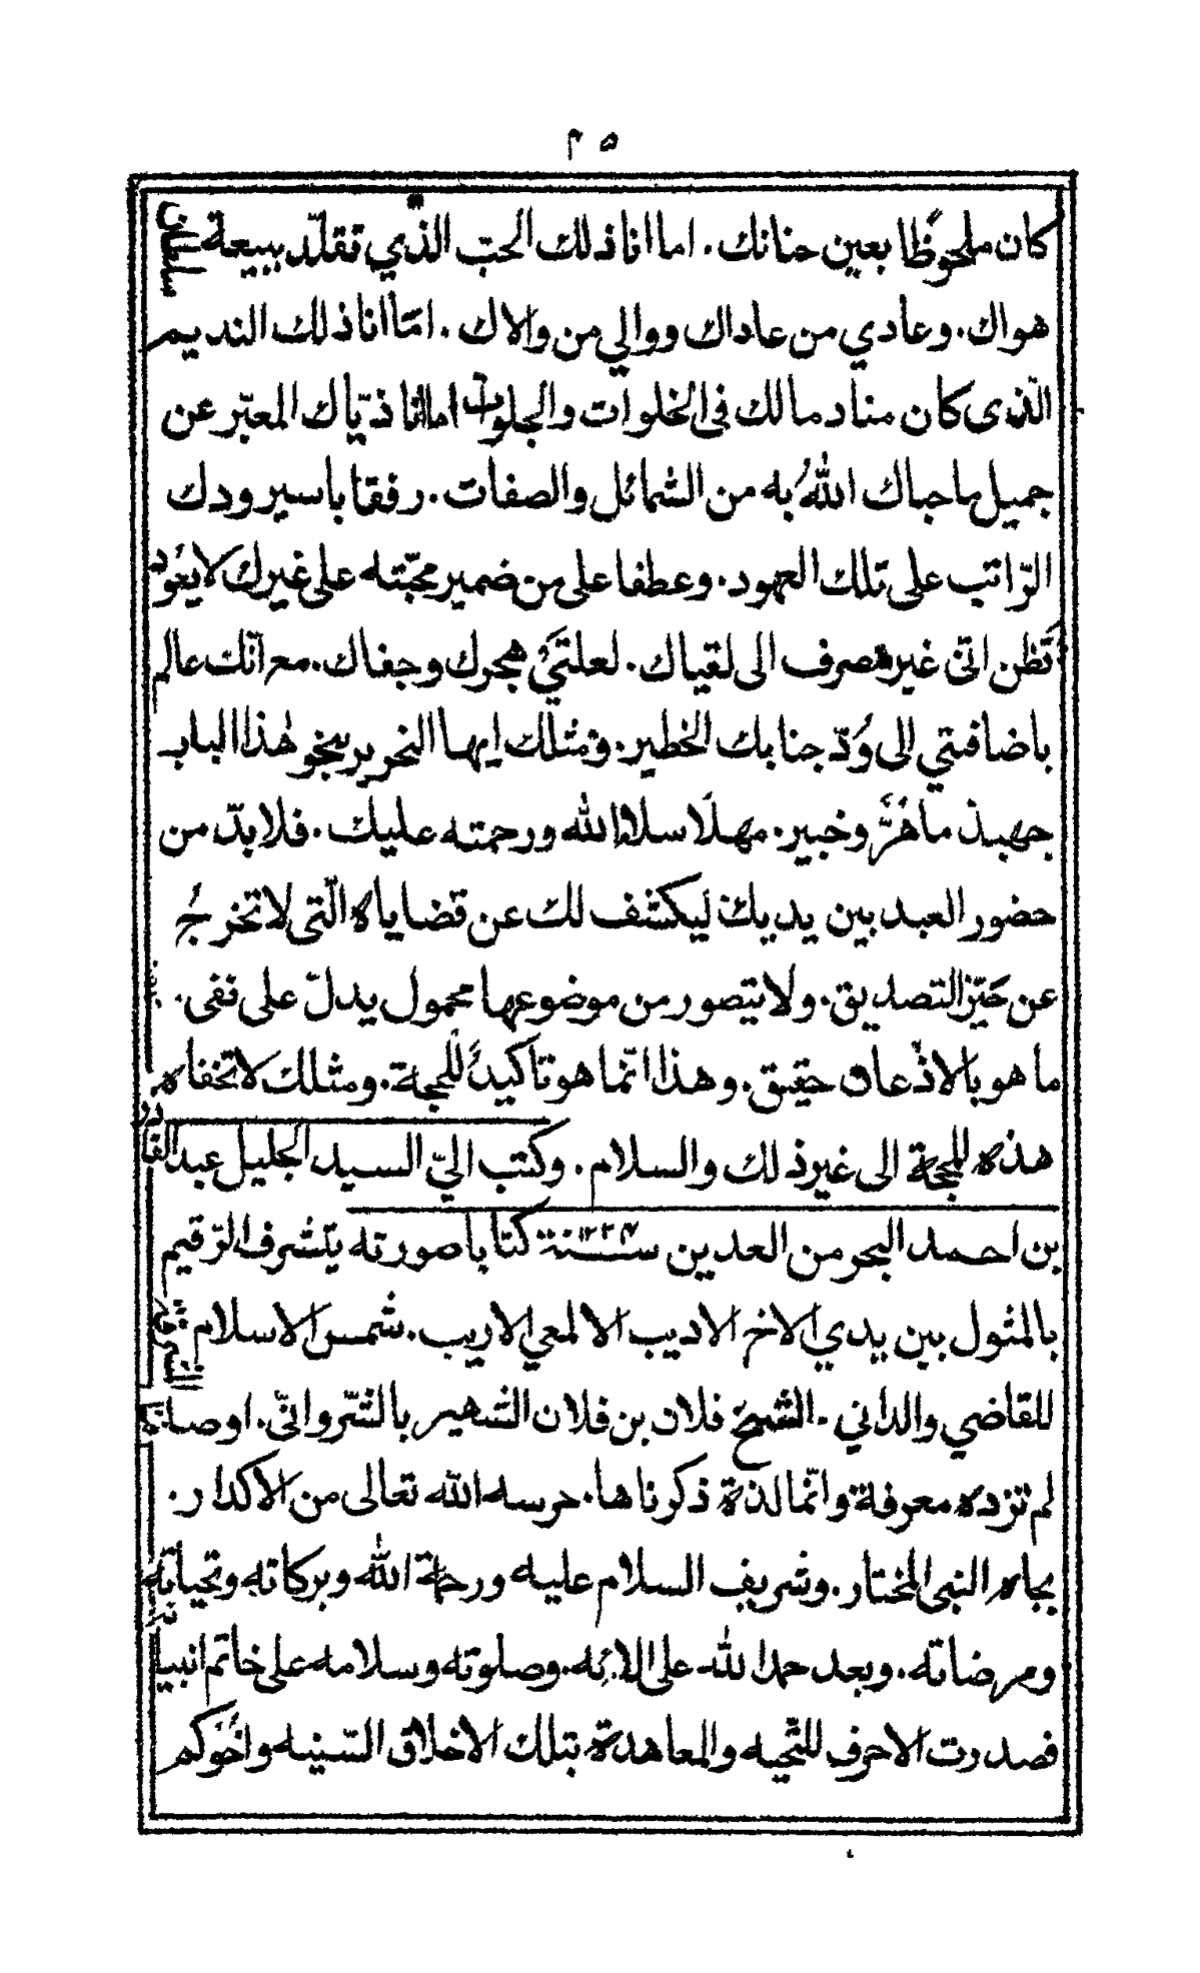 ٢٥
كان ملحوظا بعين حنانك. اما انا ذلك الحبّ الذّي تقلّد ببيعة سلطان
هواك. وعادي من عاداك ووالي من والاك. امّا انا ذلك النديم
الّذى كان منادما لك فى الخلوات والجلوات اما انا ذيّاك المعبّر عن
جميل ما حباك اللهُ به من الشمائل والصفات. رفقا باسير ودك
الرّاتب على تلك العهود. وعطفا على من ضمير محبّته على غيرك لا يعُود
أتَظن انّى غير منصرف الى لقياك. لعلتَيْ هجرك وجفاك. مع انّك عالم
باضافتي الى وُدّ جنابك الخطير. ومثلك ايها النحرير بنحو هٰذا الباب
جهبذ ماهرٌ وخبير. مهلًا سلام الله ورحمته عليك. فلا بدّ من
حضور العبد بين يديك ليكشف لك عن قضاياه الّتى لا تخرجُ
عن حَيّز التصديق. ولا يتصور من موضوعها محمول يدلّ على نفى.
ما هو بالاذعان حقيق. وهذا انّما هو تاكيدٌ للمحبة. ومثلك لا تخفاه
هذه المحجة الى غير ذلك والسلام. وكتب اليّ السيد الجليل عبد القادر
بن احمد البحر من العدين سنة ١٢٢٧ كتابا صورته يتشرف الرّقيم
بالمثول بين يدي الاخ الاديب الالمعي الاريب. شمس الاسلام
للقاضي والداني. الشيخ فلان بن فلان الشهير بالشّروانّي. اوصافا
لم تزده معرفة وانّما لذة ذكرناها. حرسه الله تعالى من الاكدار.
بجاه النبى المختار. وشريف السلام عليه ورحمة الله وبركاته وتحياته
ومرضاته. وبعد حمدا لله على الائه. وصلوته وسلامه على خاتم انبيائه
فصدرت الاحرف للتّحيه والمعاهدة بتلك الاخلاق السّنيه واخُوكم